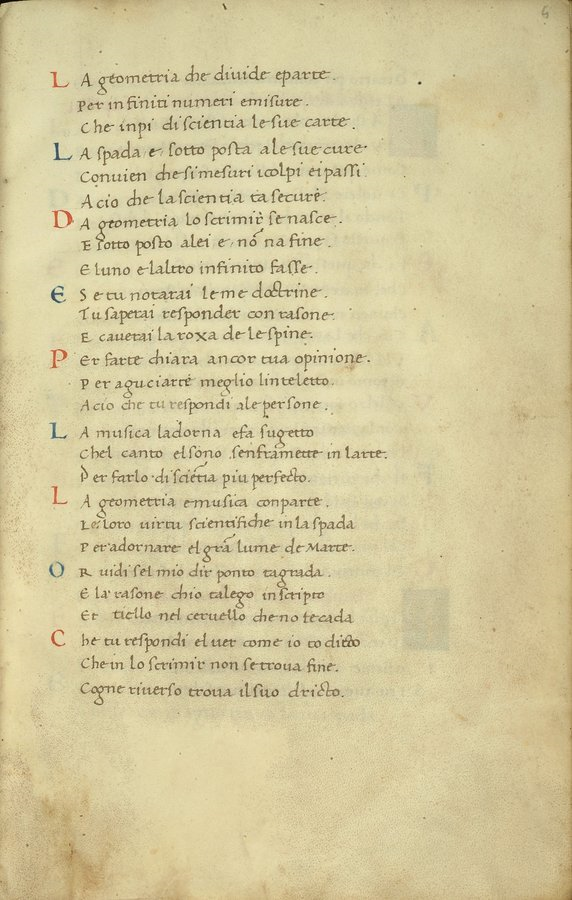 6
LA geometria che divide eparte.
Per infiniti numeri emisure.
Che inpi di scientia le sue carte.
LA spada e, sotto posta ale sue cure.
Convien che si mesuri icolpi ei passi.
Acio che la scientia ta secure.
DA geometria lo scrimir se nasce.
E sotto posto alei e, nõ na fine.
E luno e laltro infinito fasse.
ES e tu notarai le me doctrine.
Tu saperai responder con rasone.
E caverai la roxa de le spine.
PEr farte chiara ancor tua opinione.
Per aguciarte meglio linteletto.
Acio che tu respondi ale persone.
LA musica ladorna e fa sugetto
Chel canto el sono senframette in larte.
Per farlo di sciẽtia piu perfecto.
LA geometria e musica conparte.
Le loro virtu scientifiche in la spada
Per adornare el grã lume de Marte.
OR vidi sel mio dir ponto tagrada.
E la rasone chio talego in scripto
Et tiello nel cervello che no te cada
Che tu respondi el ver come io to dicto
Che in lo scrimir non se trova fine.
Cogne riverso trova il suo dricto.